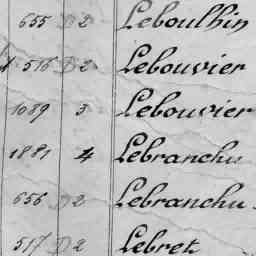 655 D 2 Leboulhin
516 D 2 Lebouvier
1089 3 Lebouvier
1881 4 Lebranchu
656 D 2 Lebranchu
517 D 2 Lebret